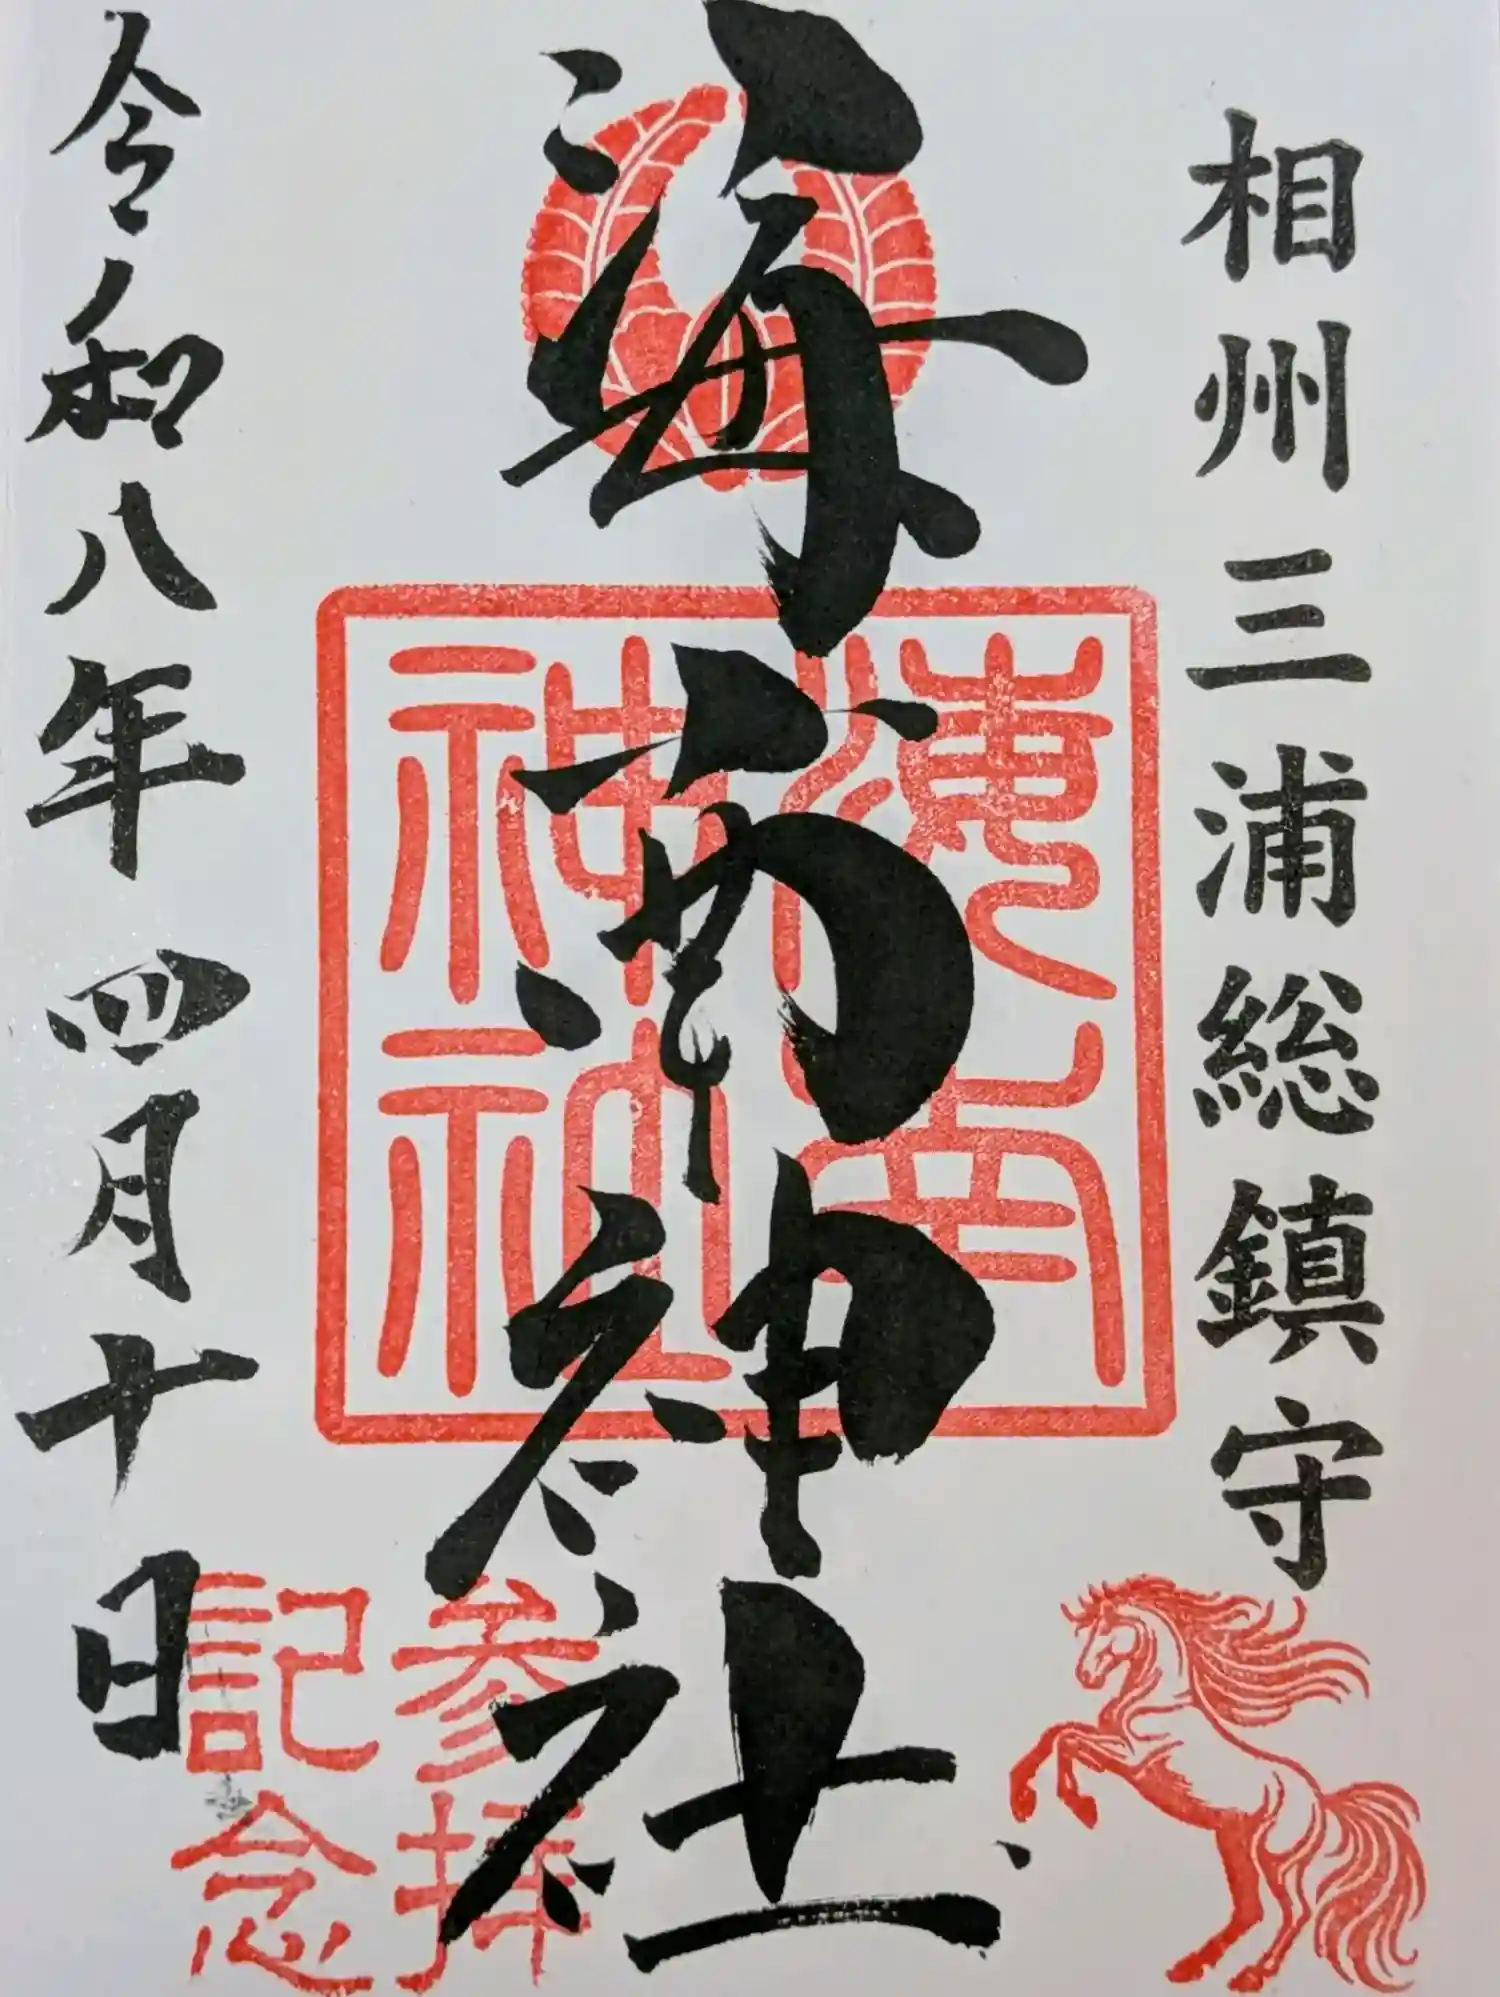 相州三浦総鎮守
海南神社
海南神社
参拝記念
令和八年四月十日